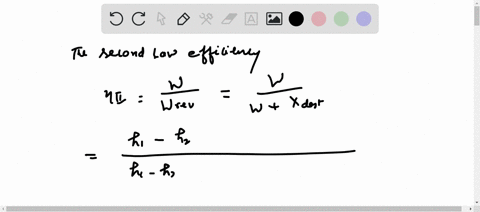 The second Low efficiency
ηII = W / Wrev = W / W + Xdest
= h1 - h2 / h1 - h2